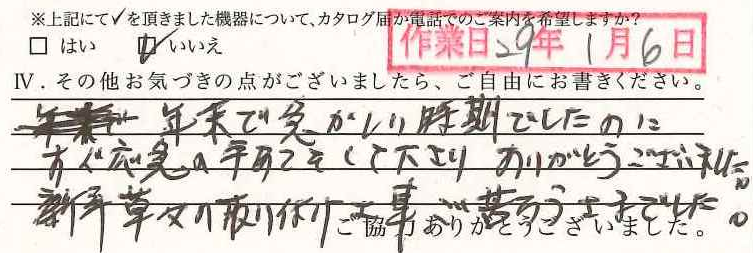 ※上記にて✓を頂きました機器について、カタログ届か電話でのご案内を希望しますか?
□ はい ☑ いいえ
作業日 29年 1月6日
Ⅳ. その他お気づきの点がございましたら、ご自由にお書きください。
年末で急がしい時期でしたのに
すぐ応急の手あてをして下さり ありがとうございました。
新年早々の取り付け ご苦労さまでした。
ご協力ありがとうございました。